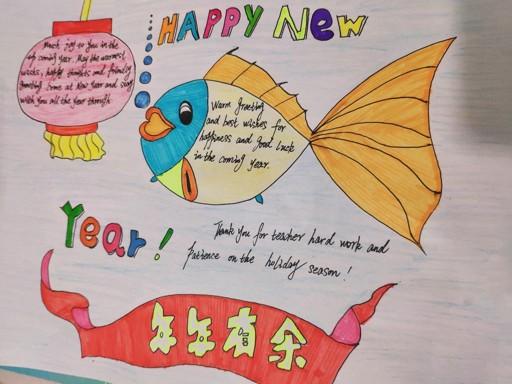 HAPPY New
Much joy to you in the
up coming year. May the warmest
wishes, happy thoughts and friendly
greeting come at New year and stay
with you all the year through
Warm greeting
and best wishes for
happiness and good luck
in the coming year.
Year!
Thank you for teacher hard work and
Patience on the holiday season!
年年有余